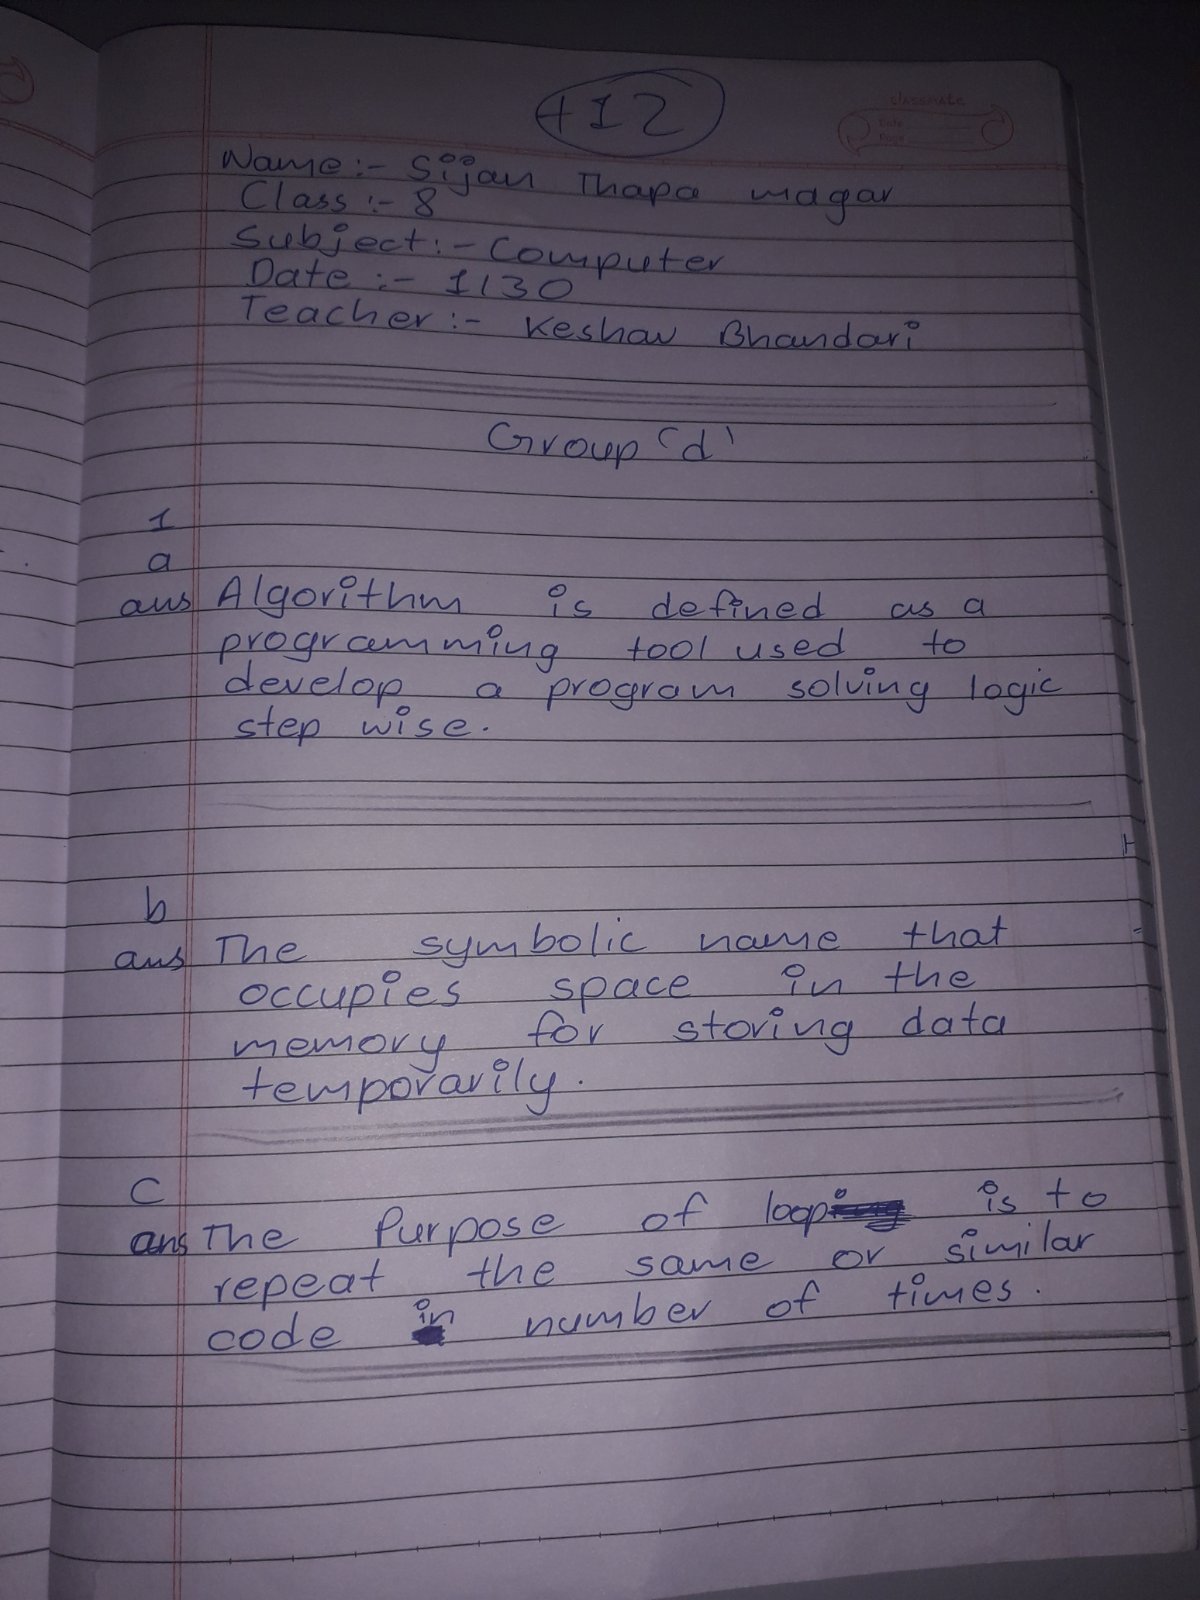 +12
classmate
Date
Page
Name:- Sijan Thapa magar
Class:- 8
Subject:- Computer
Date:- 1130
Teacher:- Keshav Bhandari
Group 'd'
1
a
ans Algorithm is defined as a
programming tool used to
develop a program solving logic
step wise.
b
ans The symbolic name that
occupies space in the
memory for storing data
temporarily.
C
ans The Purpose of loop is to
repeat the same or similar
code in number of times.